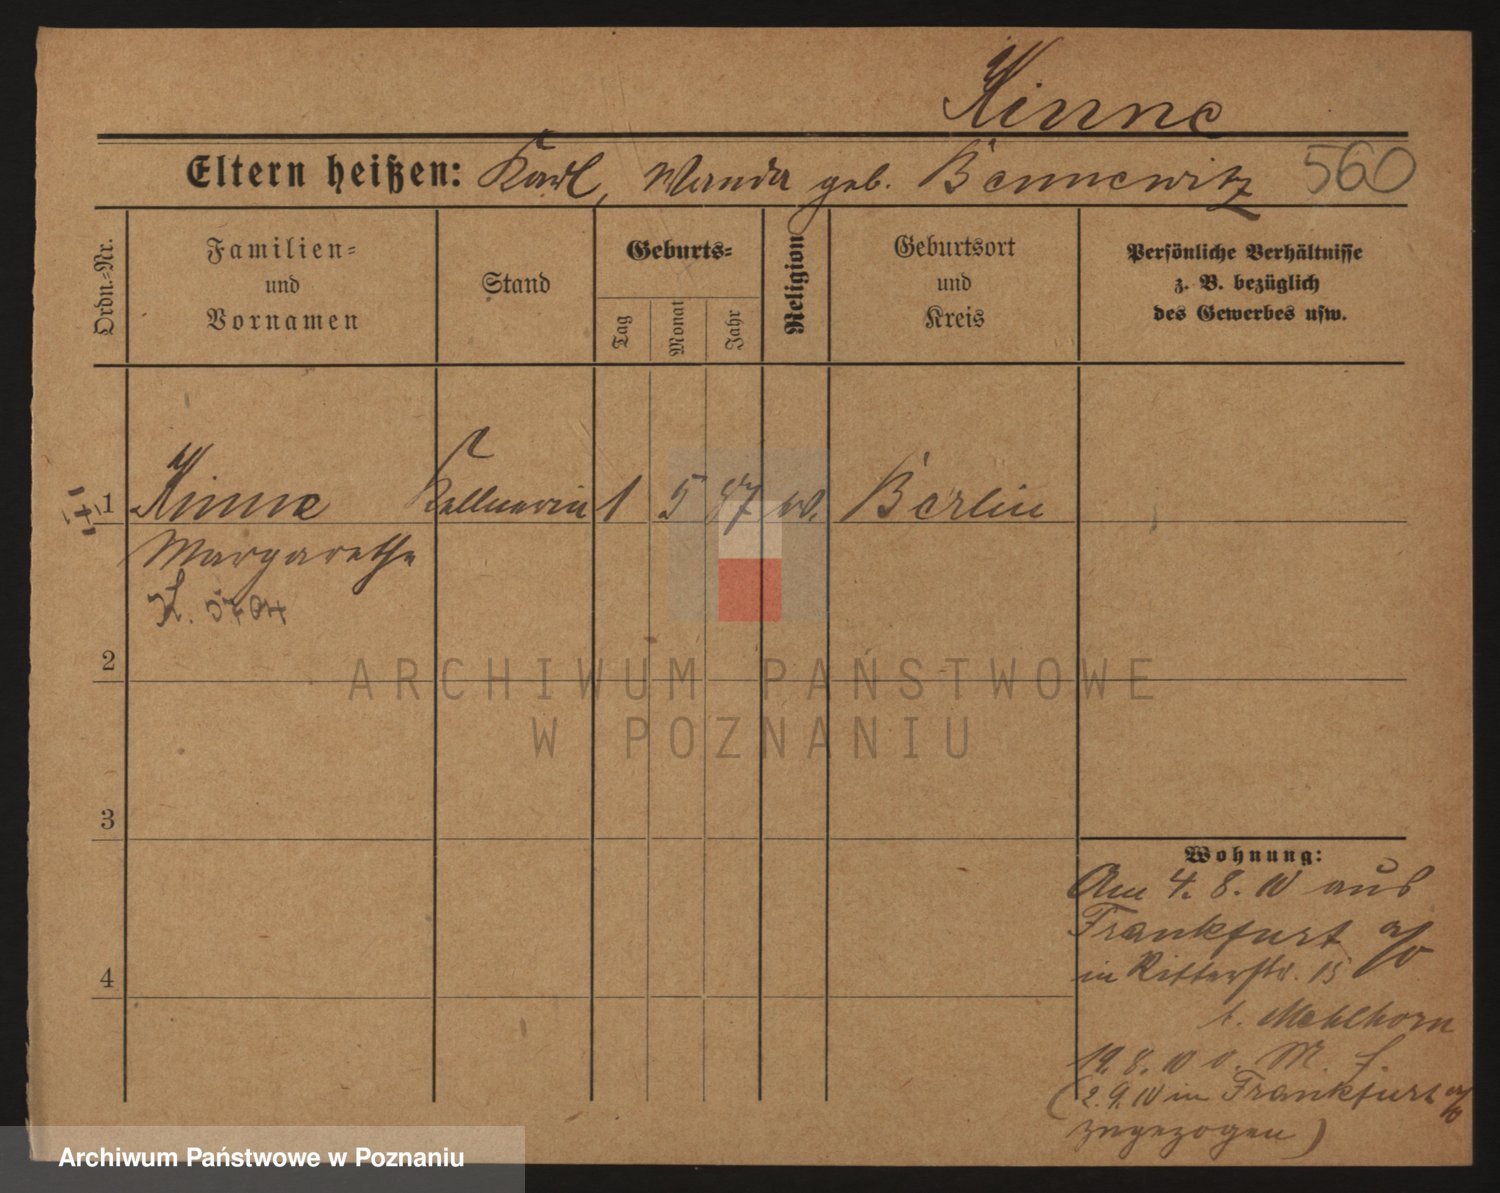 Kinne
Eltern heißen: Karl, Wanda geb. Bennewitz 560
Ordn.-Nr.
Familien-
und
Vornamen
Stand
Geburts-
Tag
Monat
Jahr
Religion
Geburtsort
und
Kreis
Persönliche Verhältnisse
z. B. bezüglich
des Gewerbes usw.
1 Kinne Kellnerin 1 5 87 Berlin
Margarethe
K. 5704
2
3
4
ARCHIWUM PAŃSTWOWE
W POZNANIU
Wohnung:
Am 4. 8. 10 aus
Frankfurt a/O
in Ritterstr. 15
b. Mehlhorn
19. 8. 10 v. M. f.
(2. 9. 10 in Frankfurt a/O
zugezogen)
Archiwum Państwowe w Poznaniu